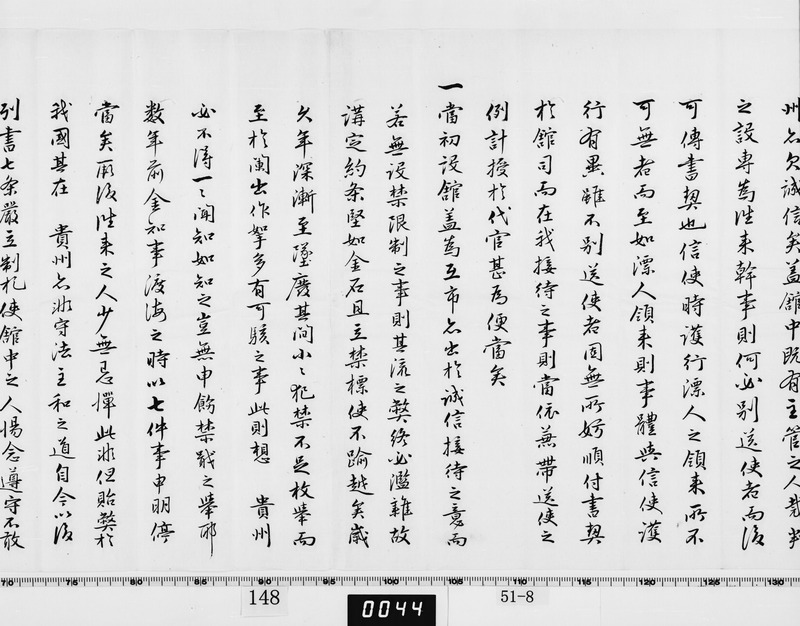 州亦欠誠信矣盖館中既有主管之人凡
之設專為往来幹事則何必別送使者而後
可傳書契也信使時護行漂人之領来所不
可無者而至如漂人領来則事體與信使護
行有異雖不別送使者固無所妨順付書契
於館司而在我接待之事則當依兼帶送使之
例計授於代官甚為便當矣
一當初設館盖為互市亦出於誠信接待之意而
若無設禁限制之事則其流之弊終必濫雜故
講定約条堅如金石且立禁標使不踰越矣歲
久年深漸至墜廢其間小〻犯禁不足枚舉而
至於闌出作拏多有可駭之事此則想 貴州
必不得一〻聞知如知之豈無申飭禁戢之舉耶
数年前金知事渡海之時以七件事申明停
當矣厥後往来之人少無忌憚此非但貽弊於
我國其在 貴州亦非守法主和之道自今以後
列書七条嚴立制札使館中之人惕念遵守不敢
70 75 80 85 90 95 100 105 110 115 120 125 130
148 0044 51-8